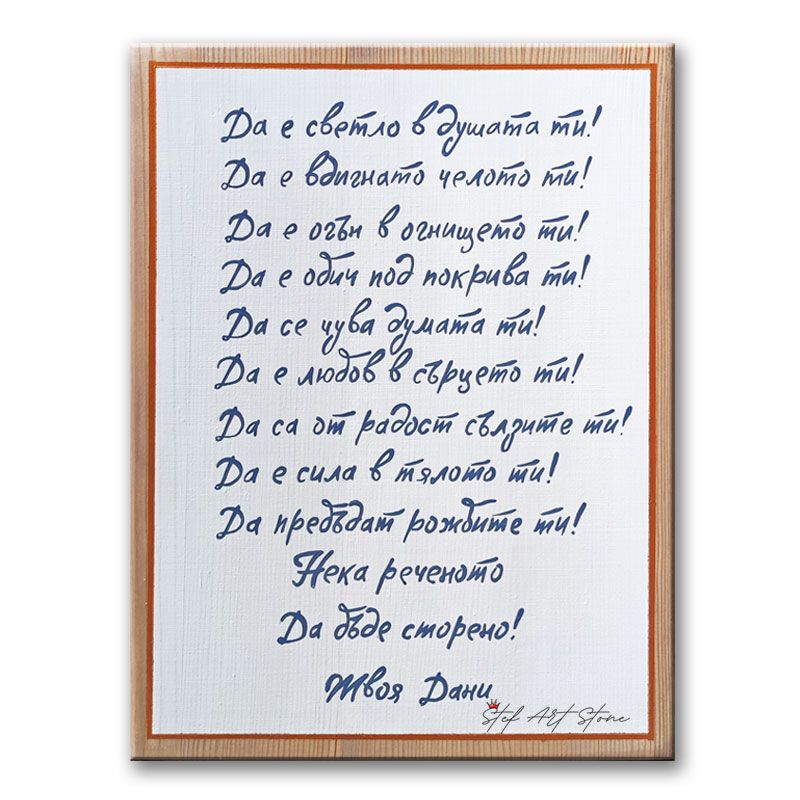 Да е светло в душата ти!
Да е вдигнато челото ти!
Да е огън в огнището ти!
Да е обич под покрива ти!
Да се чува думата ти!
Да е любов в сърцето ти!
Да са от радост сълзите ти!
Да е сила в тялото ти!
Да пребъдат рожбите ти!
Нека реченото
Да бъде сторено!
Твоя Дани
Stef Art Stone